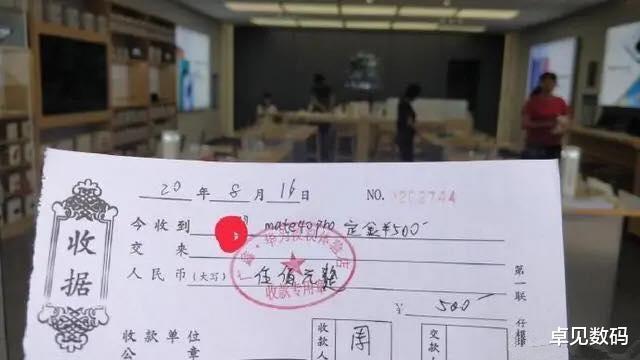 收据
20 年 8 月 16 日
NO. 1202744
今收到 mate40pro 定金¥500-
交来
人民币(大写) 伍佰元整
收款专用章
¥ 500-
第一联
收款单位
公章
收款人
周
交款
卓见数码